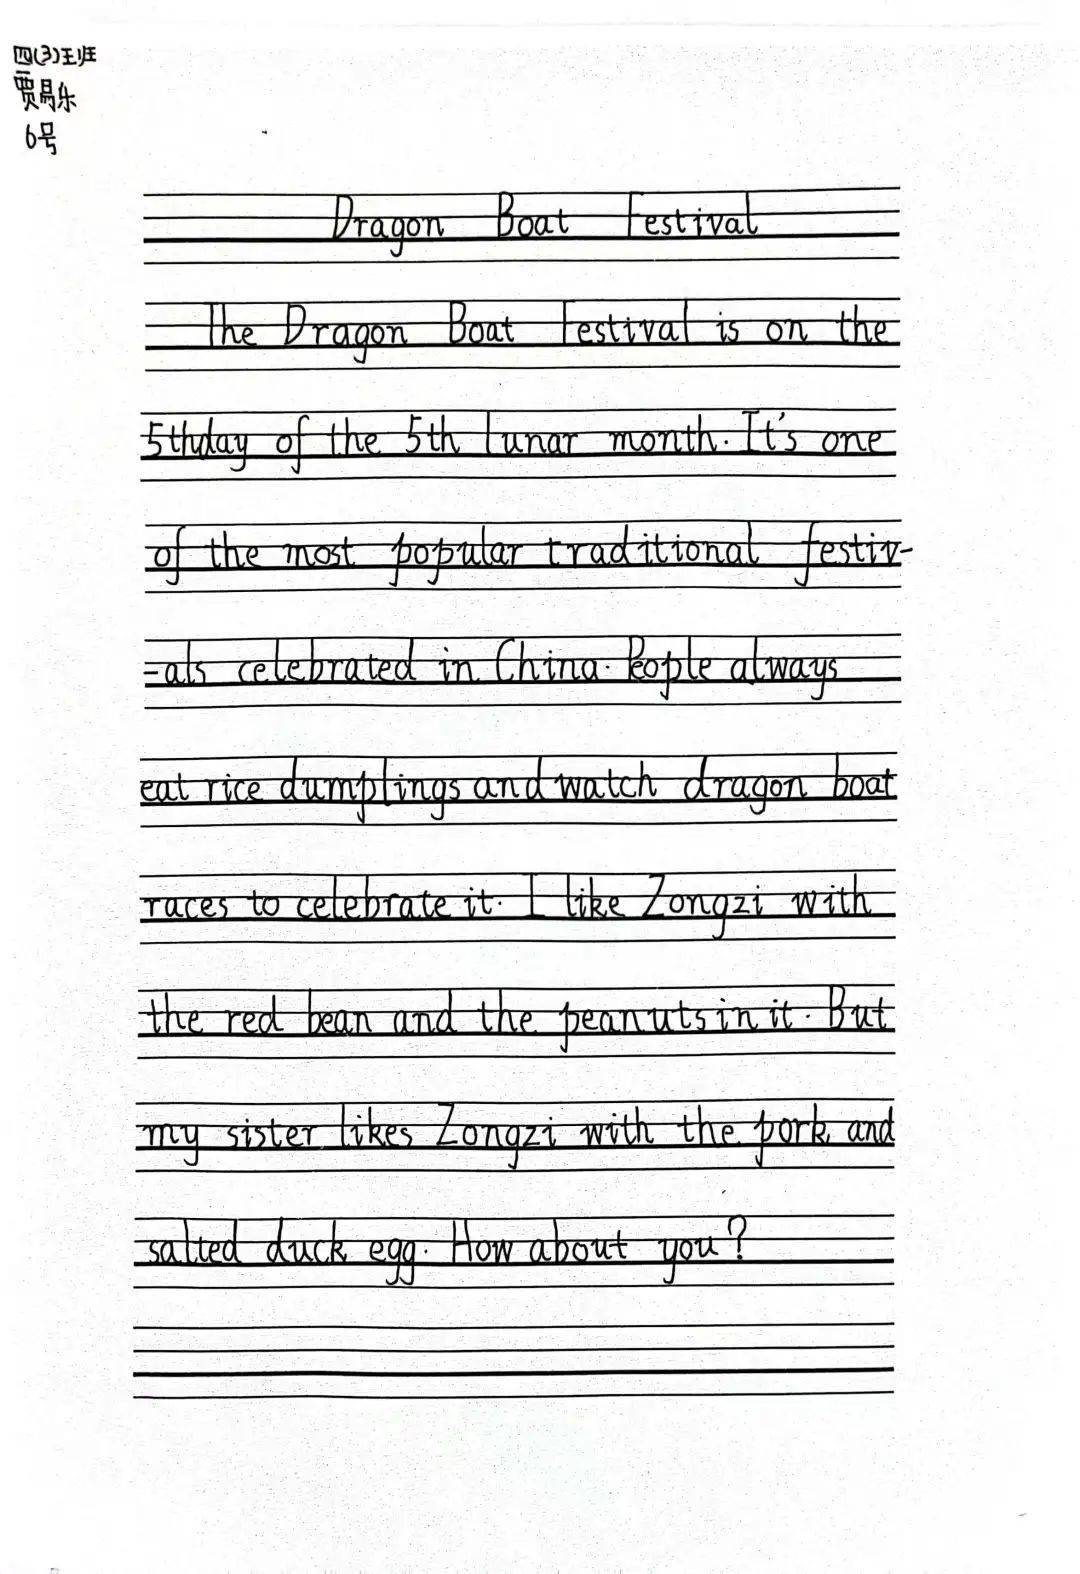 四(3)王班
贾易乐
6号
Dragon Boat Festival
The Dragon Boat Festival is on the
5thday of the 5th lunar month. It's one
of the most popular traditional festiv-
-als celebrated in China. People always
eat rice dumplings and watch dragon boat
races to celebrate it. I like Zongzi with
the red bean and the peanuts in it. But
my sister likes Zongzi with the pork and
salted duck egg. How about you?